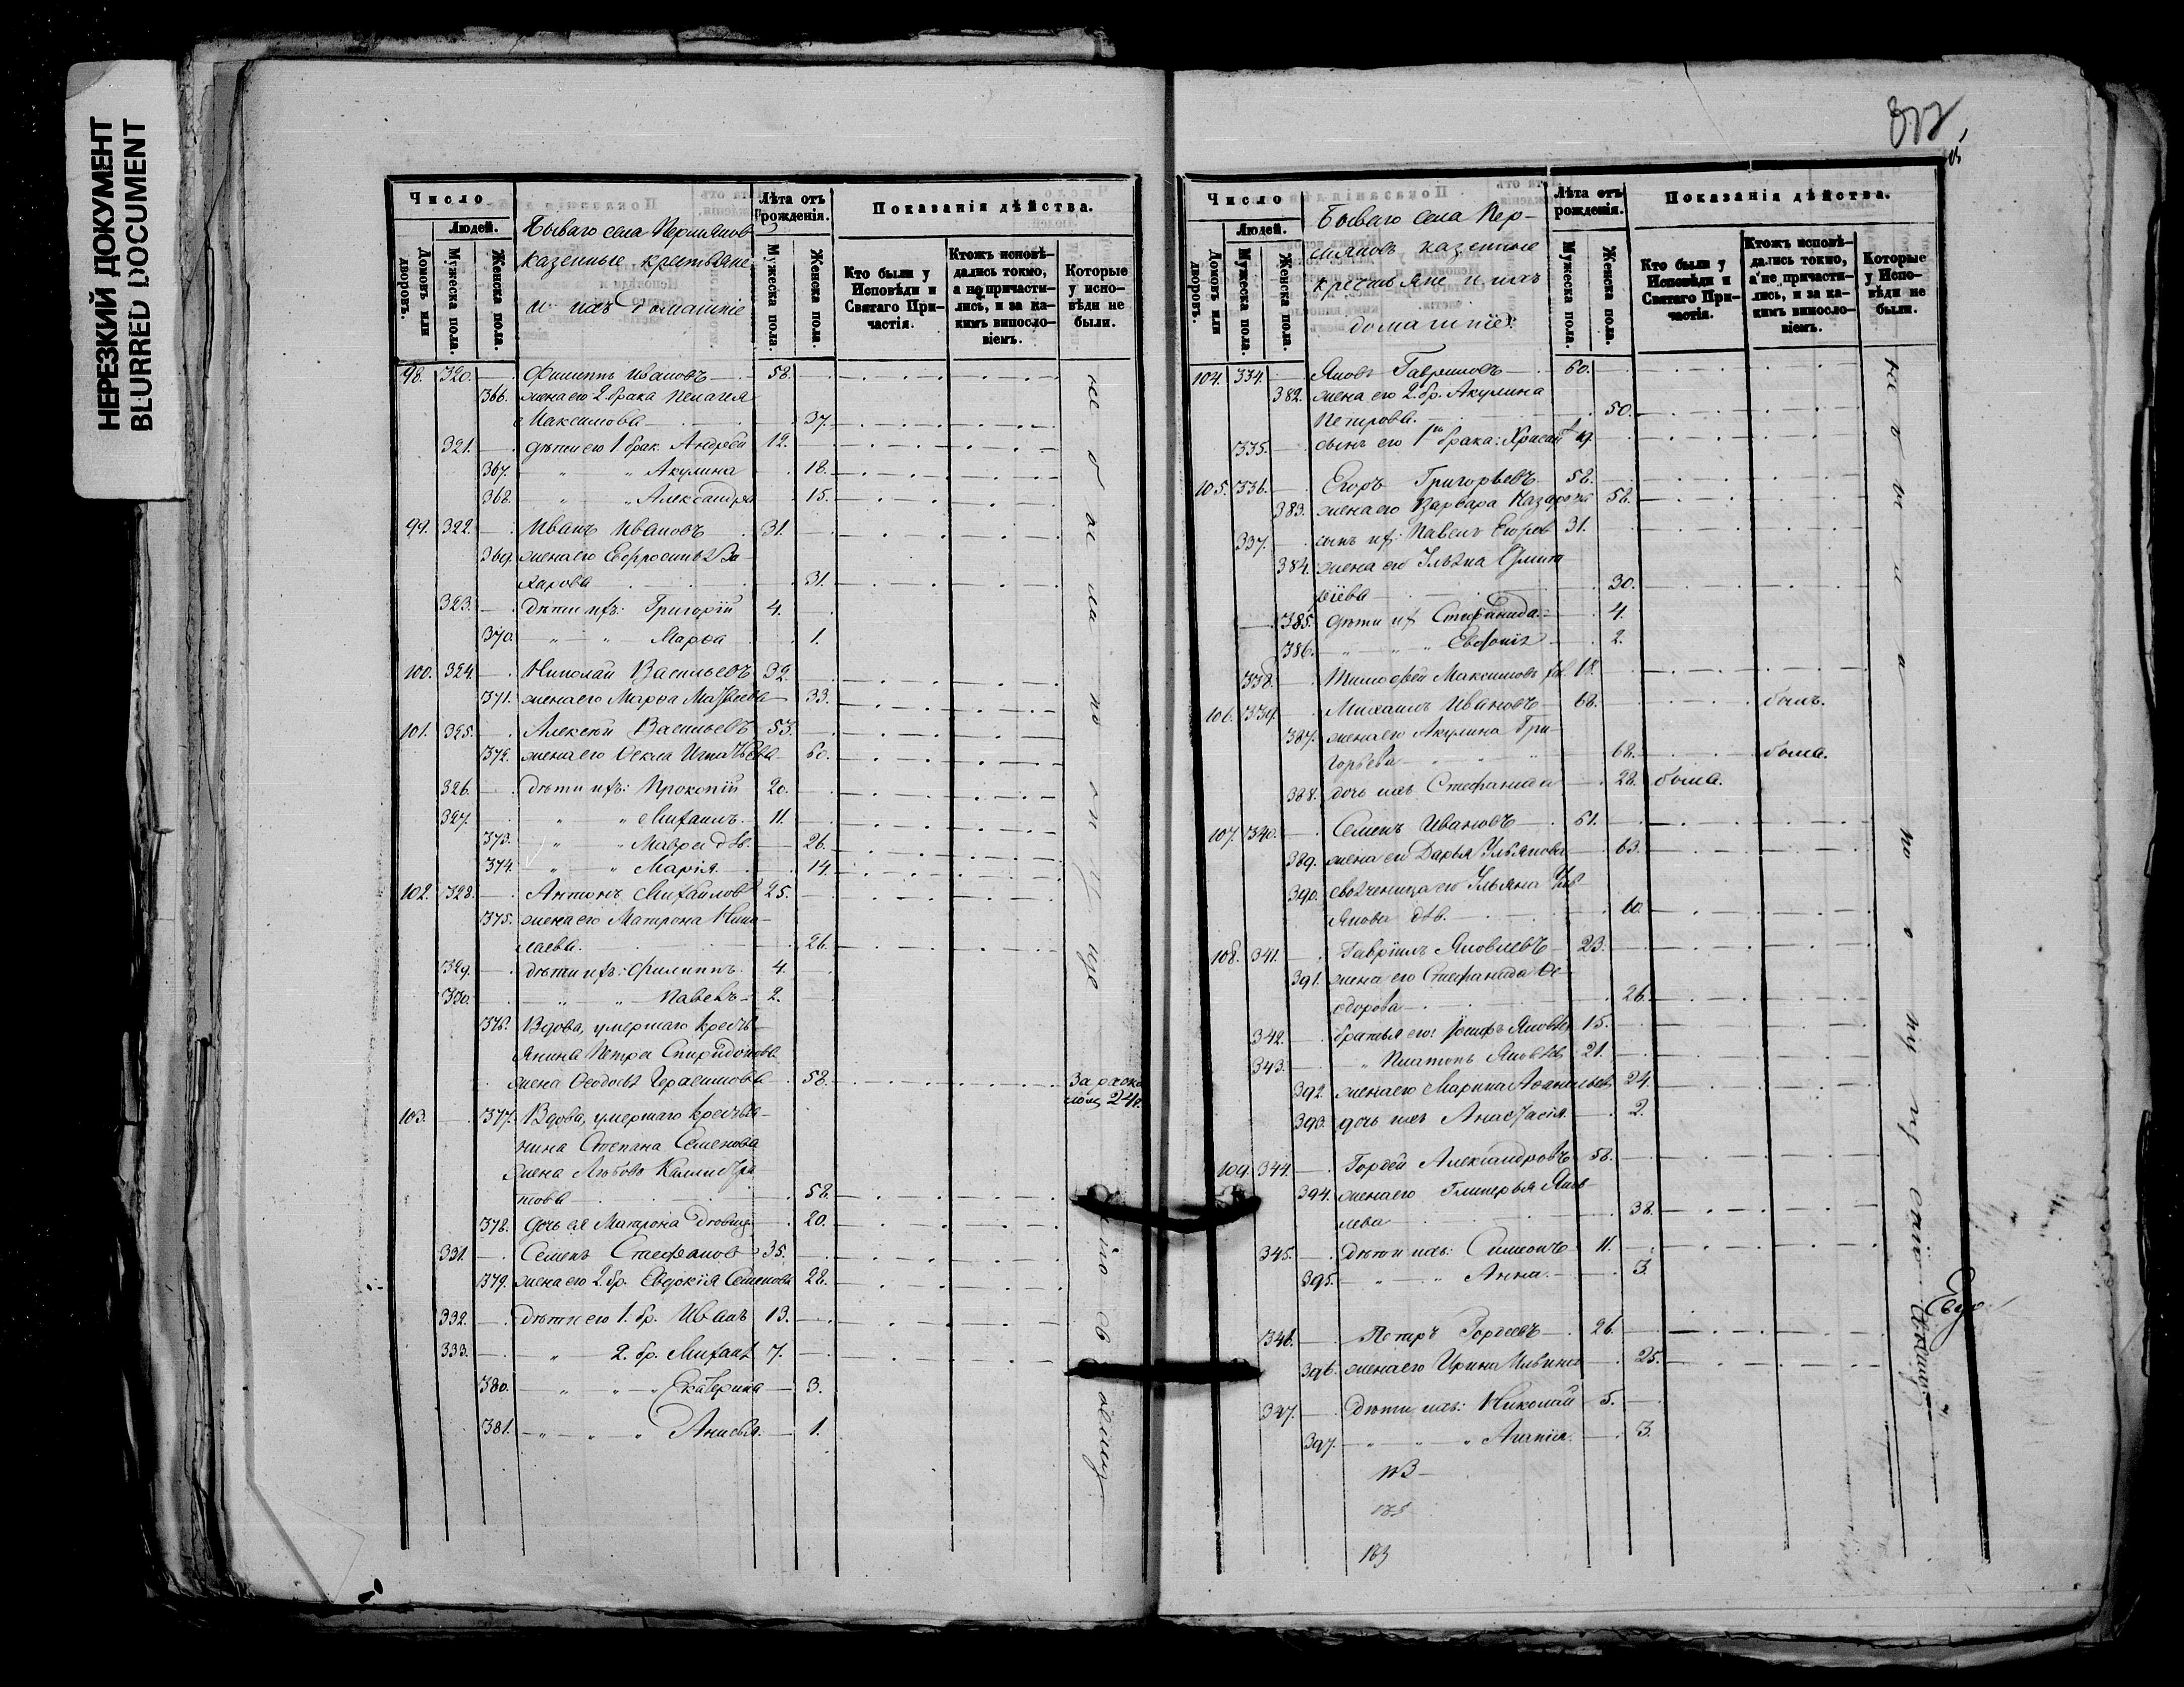 НЕРЕЗКИЙ ДОКУМЕНТ
BLURRED DOCUMENT
Число
Людей.
Домовъ или дворовъ.
Мужеска пола.
Женска пола.
Бываго села
казенные крестьяне
и ихъ домашніе
Лѣта отъ рожденія.
Мужеска пола.
Женска пола.
Показанія дѣйства.
Кто были у Исповѣди и Святаго Причастія.
Ктожъ исповѣдались токмо, а не причастились, и за какимъ винословіемъ.
Которые у исповѣди не были.
98. 320. Филиппъ Ивановъ 58.
366. жена его 2. брака Пелагея
Максимова 37.
321. дѣти его 1 брак. Андрей 12.
367. " " Акулина 18.
368. " " Александра 15.
99. 322. Иванъ Ивановъ 31.
369. жена его Евфросинья За-
харова 31.
323. дѣти ихъ: Григорій 4.
370. " " Марфа 1.
100. 324. Николай Васильевъ 32.
371. жена его Марфа Матвеева 33.
101. 325. Алексѣй Васильевъ 53.
372. жена его Ѳекла Игнатьева 60.
326. дѣти ихъ: Прокопій 20.
327. " " Михаилъ 11.
373. " " Мавра дѣв. 26.
374. " " Марія. 14.
102. 328. Антонъ Михайловъ 25.
375. жена его Матрона Нико-
лаева. 26.
329. дѣти ихъ: Филиппъ. 4.
330. " " Павелъ 2.
376. Вдова, умершаго кресть-
янина Петра Спиридонова
жена Ѳеодосья Герасимова 58.
103. 377. Вдова, умершаго крестья-
нина Степана Семенова
жена Любовь Каллистра-
това 58.
378. Дочь ея Матрона дѣвица 20.
331. Семенъ Стефановъ 35.
379. жена его 2 бр. Евдокія Семенова 28.
332. дѣти его 1. бр. Иванъ 13.
333. " 2. бр. Михаилъ 7.
380. " " " Екатерина 3.
381. " " " Анисья. 1.
не были по
Число
Людей.
Домовъ или дворовъ.
Мужеска пола.
Женска пола.
Бываго села Пер-
сияновъ казенные
крестьяне и ихъ
домашніе.
Лѣта отъ рожденія.
Мужеска пола.
Женска пола.
Показанія дѣйства.
Кто были у Исповѣди и Святаго Причастія.
Ктожъ исповѣдались токмо, а не причастились, и за какимъ винословіемъ.
Которые у Исповѣди не были.
104. 334. Яковъ Гавриловъ 60.
382. жена его 2. бр. Акулина
Петрова. 50.
335. сынъ его 1го брака: 19.
105. 336. Егоръ Григорьевъ 58.
383. жена его Варвара Назарова 58.
337. сынъ их: Павелъ Егоров 31.
384. жена его Ульяна
30.
385. дѣти их Стефанида 4.
386. " " " 2.
338. Тимофей Максимовъ 18.
106. 339. Михаилъ Ивановъ 68. былъ.
387. жена его Акулина Гри-
горьева 68. была.
388. дочь ихъ Стефанида 28. была.
107. 340. Семенъ Ивановъ 61.
389. жена его Дарья Ульянова 63.
390. свояченица его Ульяна Уль-
янова дѣв. 60.
108. 341. Гавріилъ Яковлевъ 23.
391. жена его Стефанида Ѳе-
одорова 26.
342. братья его: Іосифъ Яковлев 15.
343. " Платонъ Яковлев 21.
392. жена его Марина 24.
393. дочь ихъ Анастасія. 2.
109. 344. Гордей Александровъ 58.
394. жена его Гликерья Яков-
лева 38.
345. дѣти ихъ: Симеонъ 11.
395. " " Анна. 3.
346. Петръ Гордеевъ 26.
396. жена его Ирина Ильина 25.
347. дѣти ихъ: Николай 5.
397. " " " Агапія. 3.
183
не были по